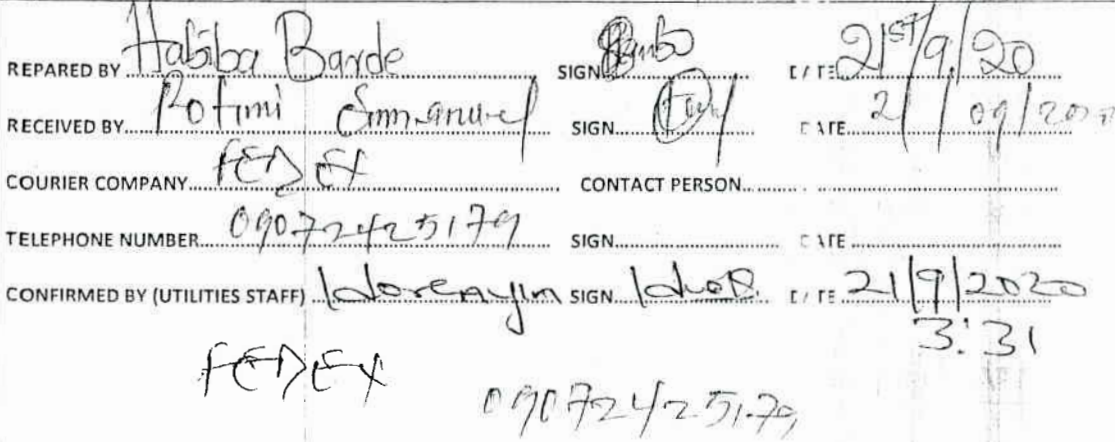 REPARED BY Habiba Barde SIGN DATE 21ST/9/20
RECEIVED BY Rotimi Emmanuel SIGN DATE 21/09/2020
COURIER COMPANY FEDEX CONTACT PERSON
TELEPHONE NUMBER 09072425179 SIGN DATE
CONFIRMED BY (UTILITIES STAFF) Idorenyin SIGN DATE 21/9/2020
3:31
FEDEX
09072425179